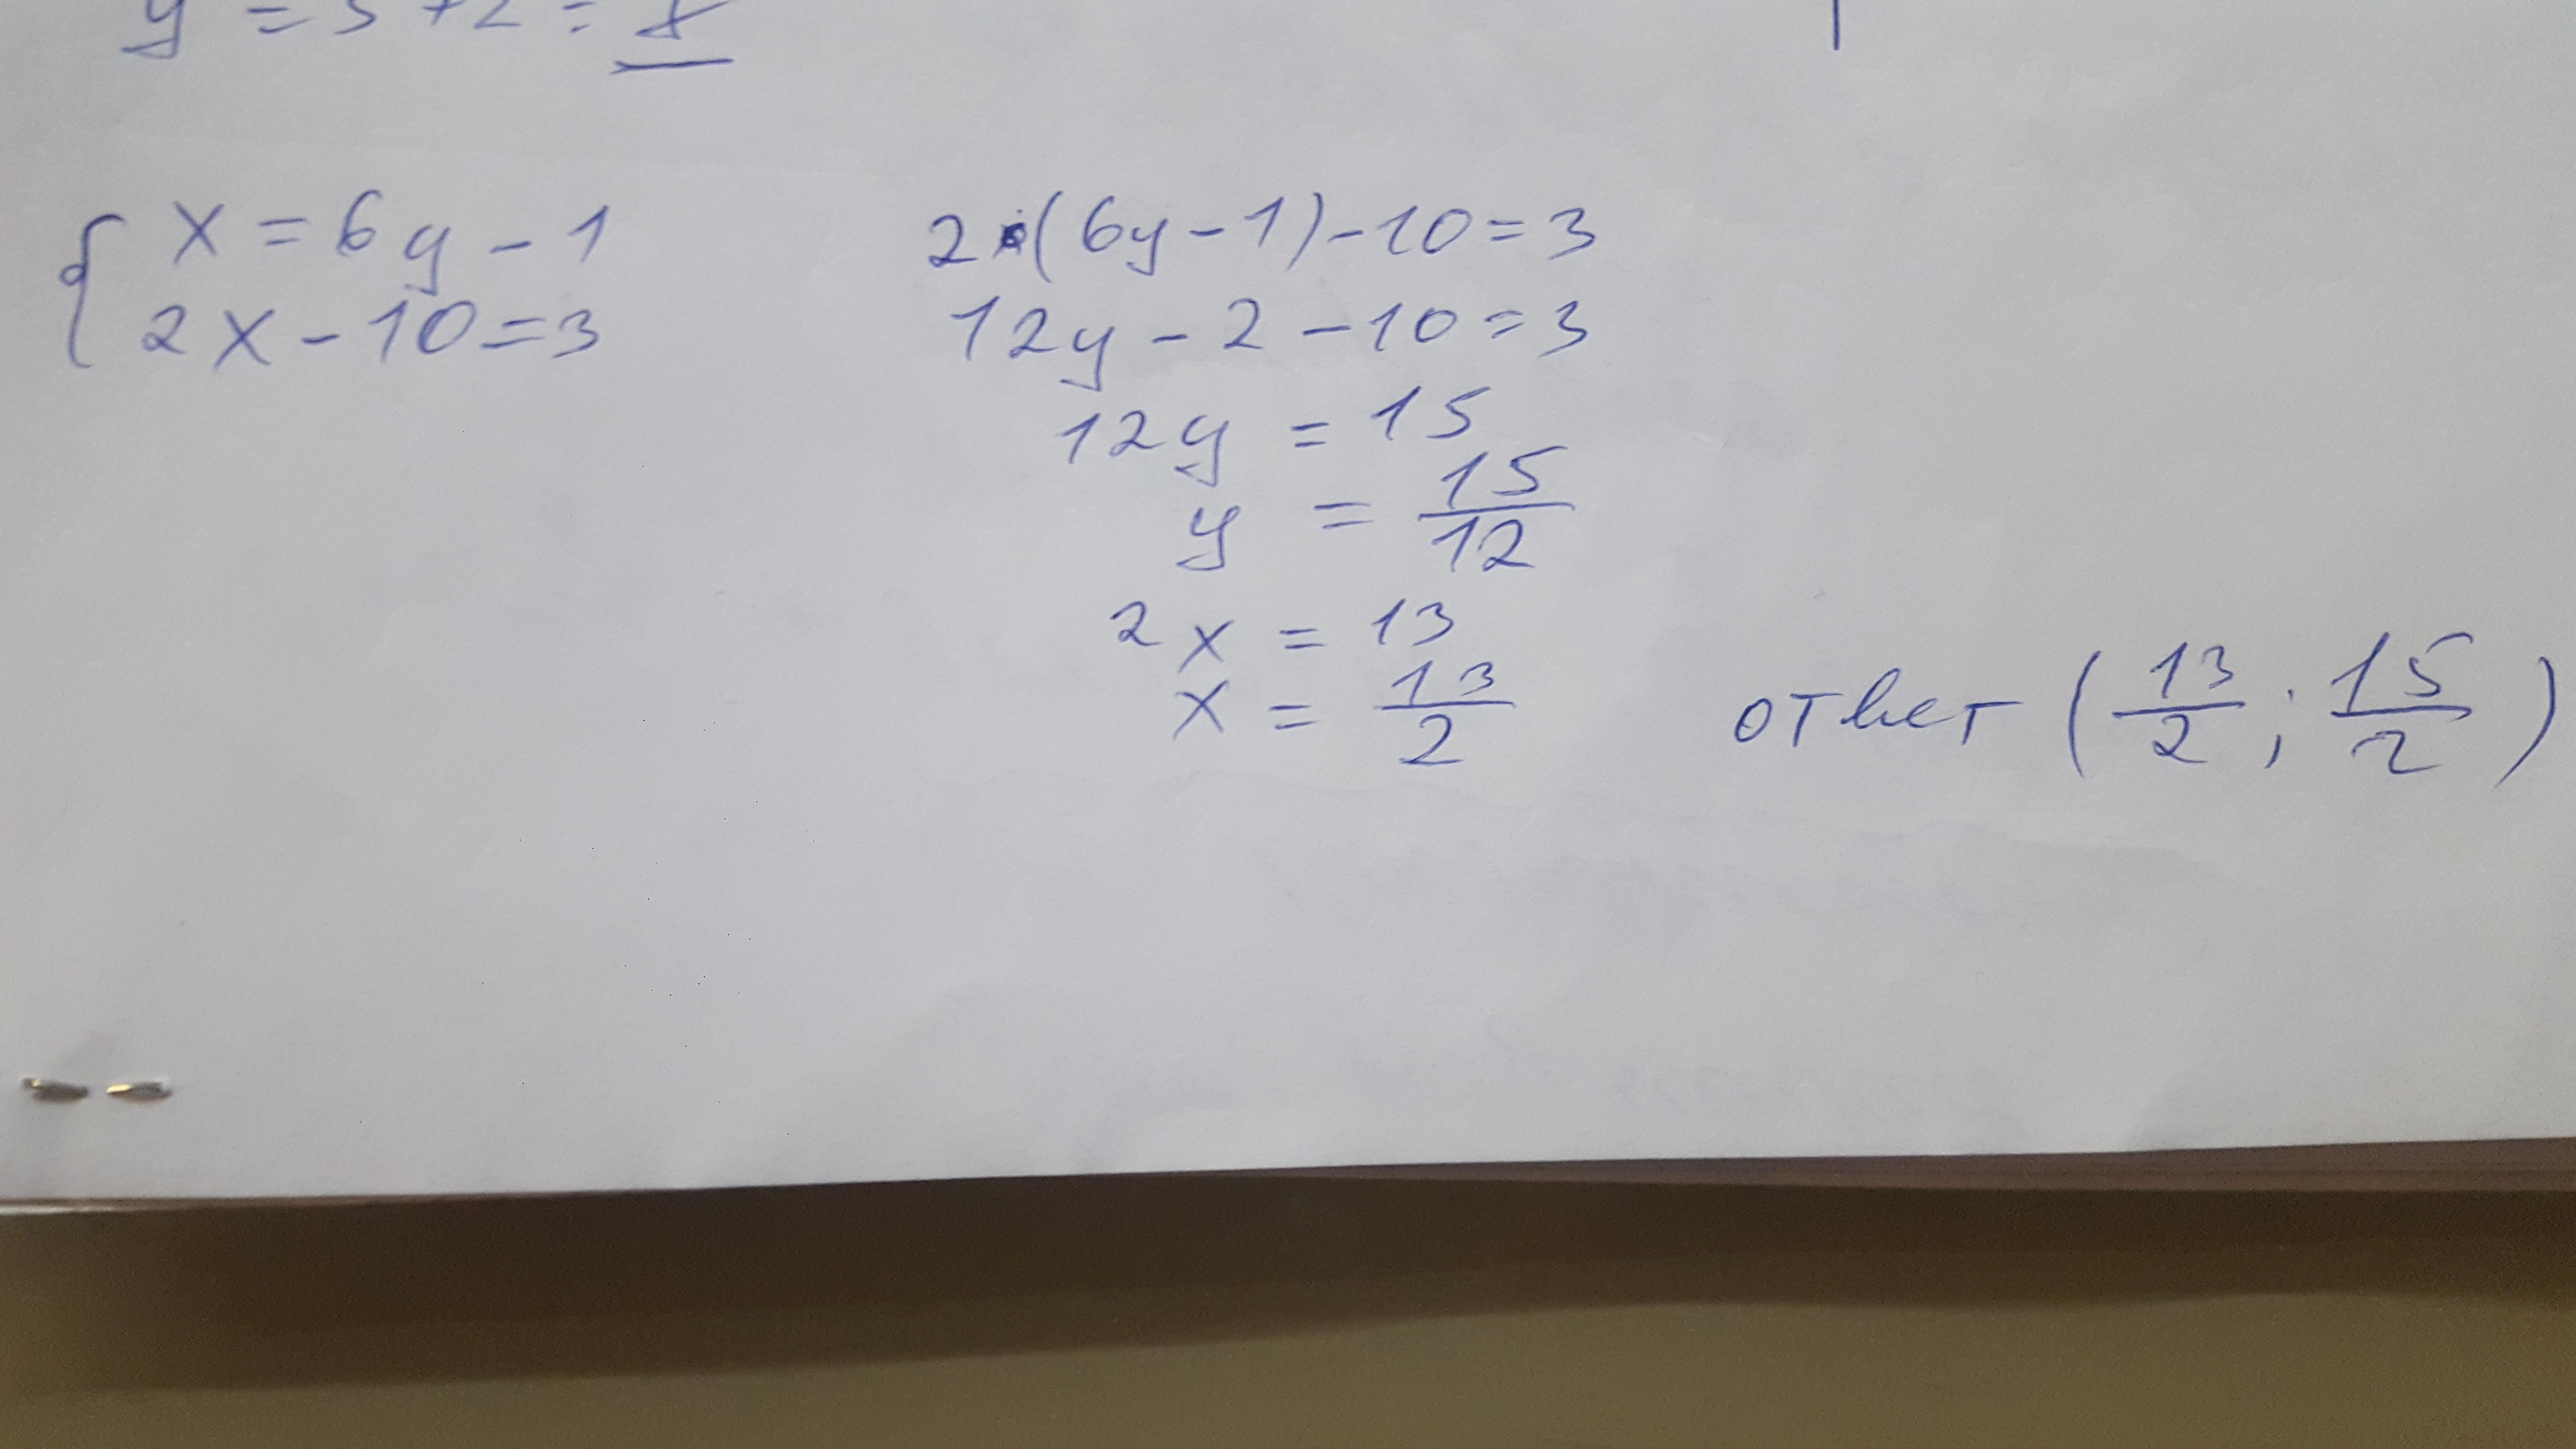 y = 3 + 2 =
{ x = 6y - 1
2x - 10 = 3
2·(6y - 1) - 10 = 3
12y - 2 - 10 = 3
12y = 15
y = 15/12
2x = 13
x = 13/2
ответ (13/2 ; 15/2)